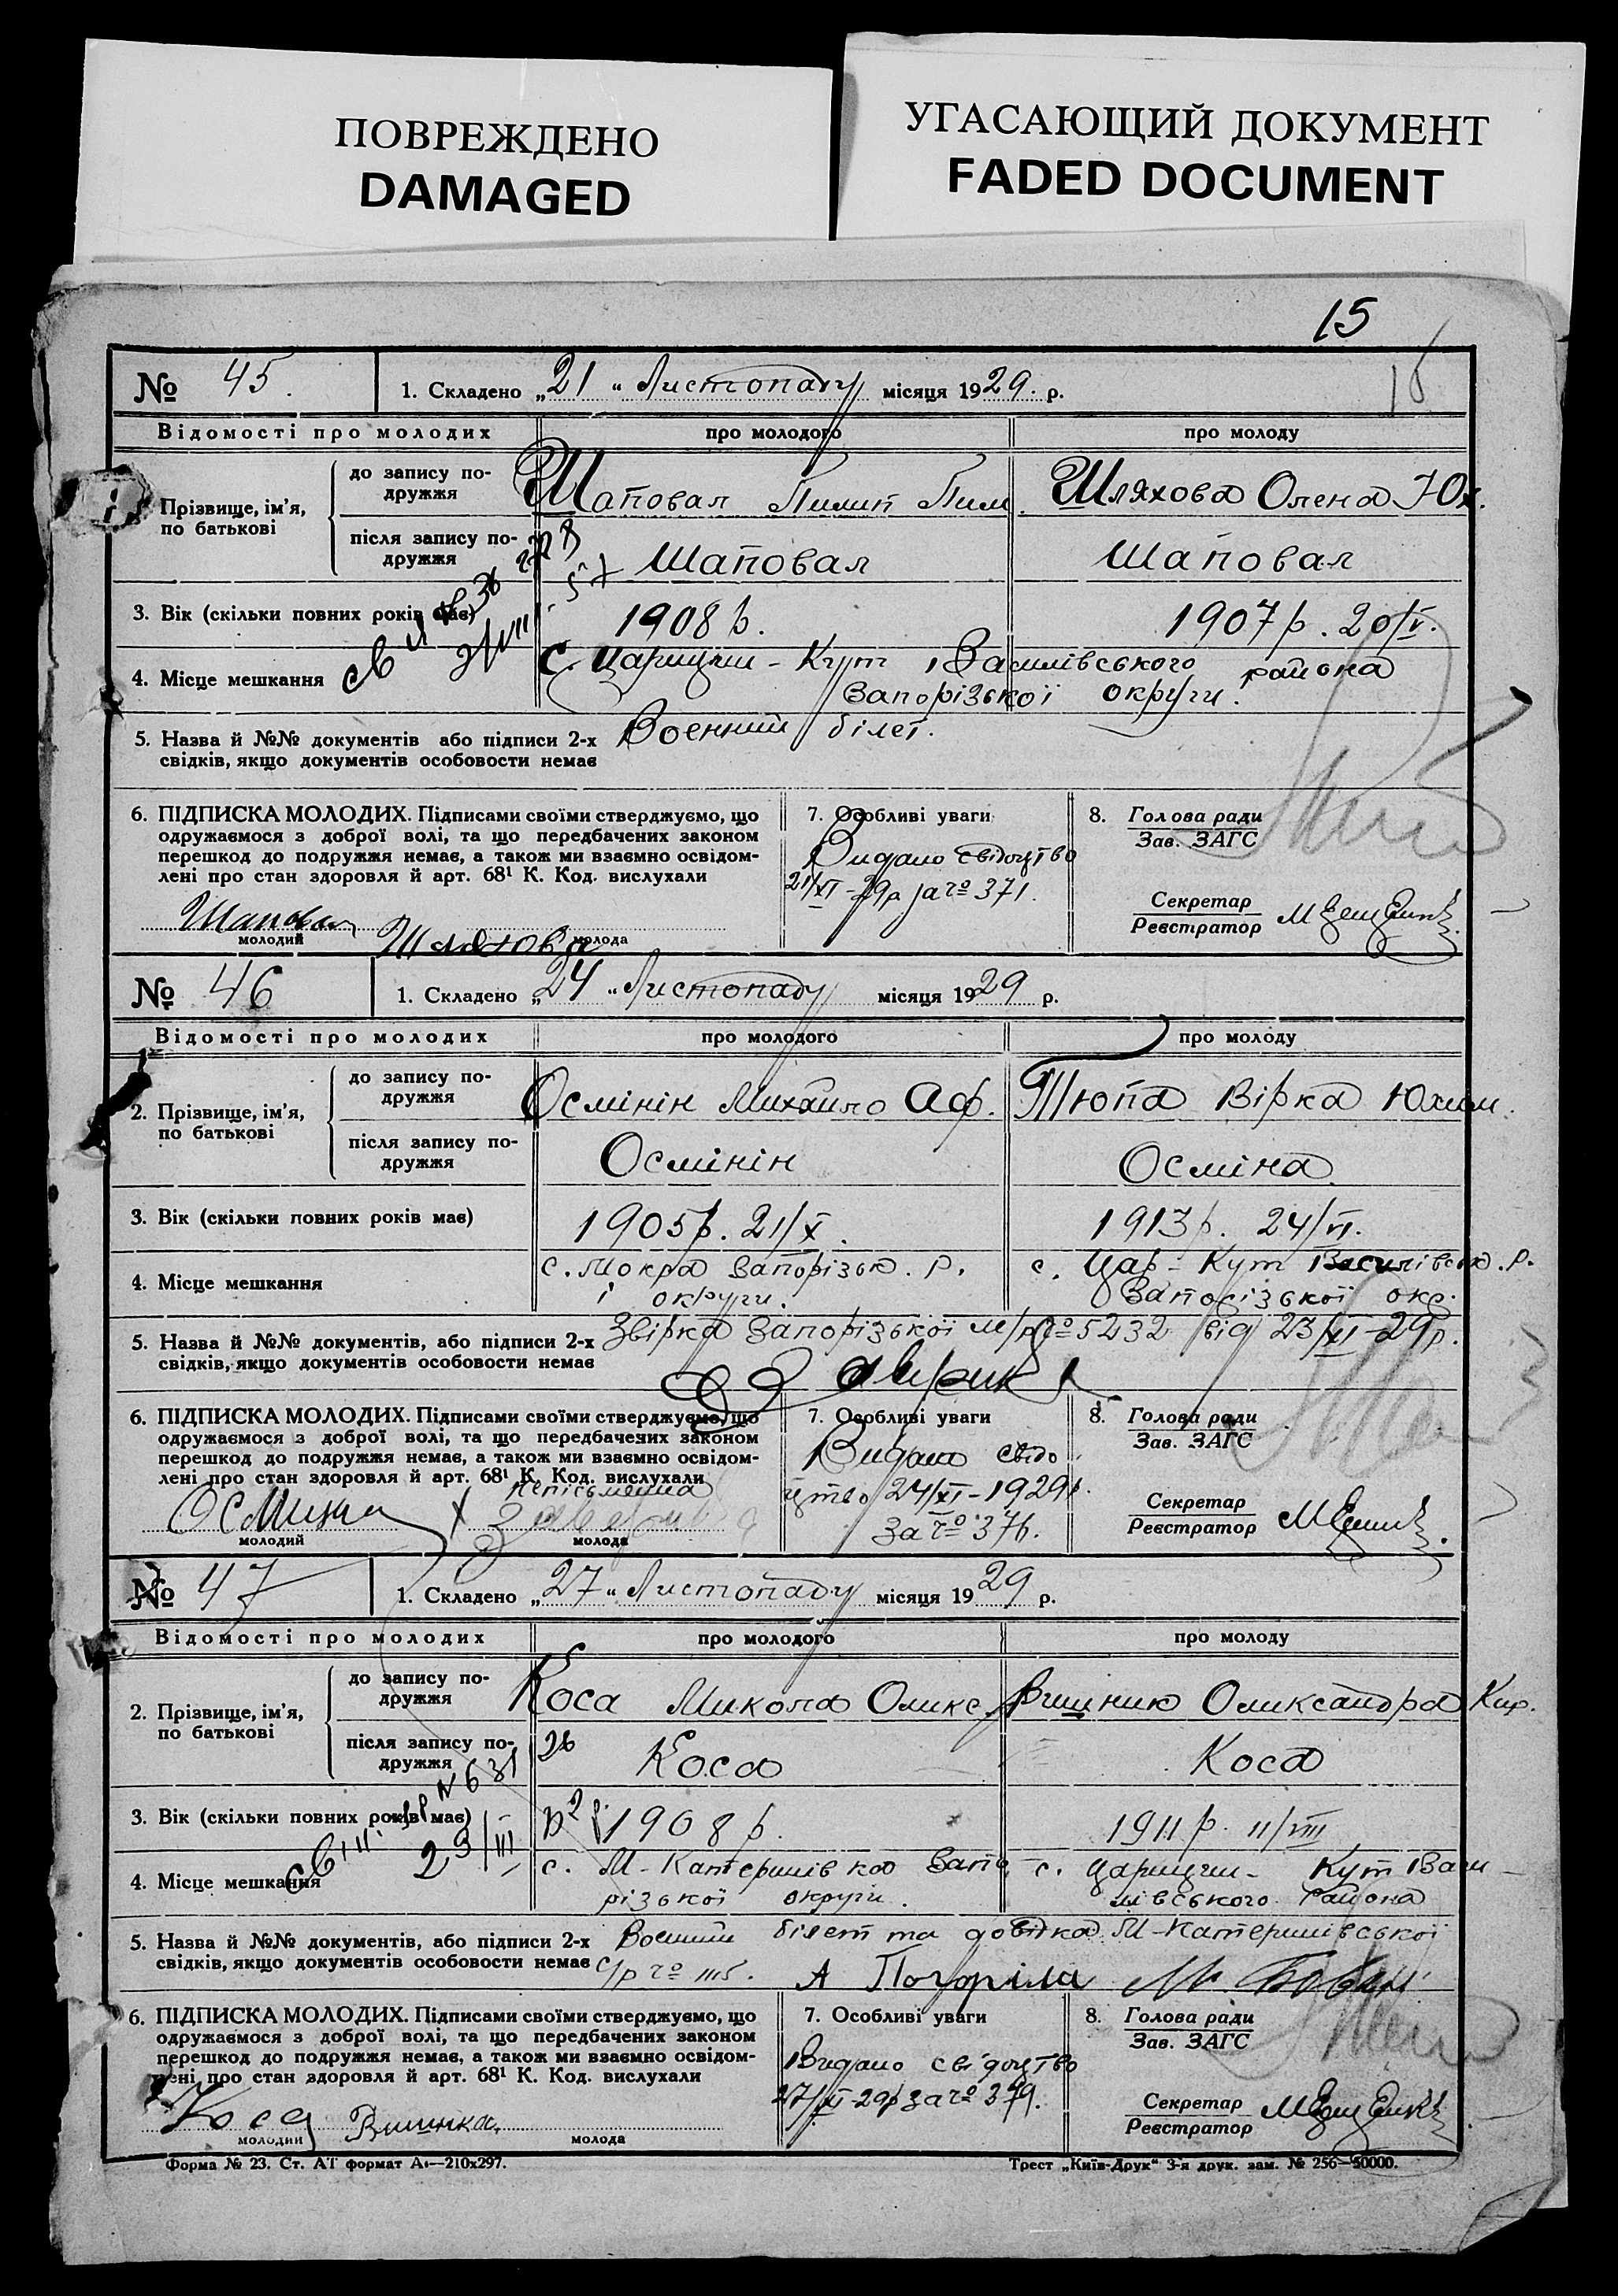 ПОВРЕЖДЕНО
DAMAGED
УГАСАЮЩИЙ ДОКУМЕНТ
FADED DOCUMENT
15
№ 45. 1. Складено „21" Листопаду місяця 1929. р.
Відомості про молодих про молодого про молоду
Прізвище, ім'я, по батькові
до запису подружжя Шаповал Пилип Пилип. Шляхова Олена Юх.
після запису подружжя Шаповал Шаповал
3. Вік (скільки повних років має) 1908 р. 1907 р. 20/V.
4. Місце мешкання с. Царицин-Кут, Василівського района
Запорізької округи.
5. Назва й №№ документів або підписи 2-х Военний білет.
свідків, якщо документів особовости немає
6. ПІДПИСКА МОЛОДИХ. Підписами своїми стверджуємо, що
одружаємося з доброї волі, та що передбачених законом
перешкод до подружжя немає, а також ми взаємно освідом-
лені про стан здоровля й арт. 68¹ К. Код. вислухали
Шаповал
молодий
Шляхова
молода
7. Особливі уваги
Видано свідоцтво
21/XI-29р за № 371.
8. Голова ради
Зав. ЗАГС
Секретар
Реєстратор
№ 46 1. Складено „24" Листопаду місяця 1929 р.
Відомості про молодих про молодого про молоду
2. Прізвище, ім'я, по батькові
до запису подружжя Осмінін Михайло Аф. Тюпа Вірка Юхим.
після запису подружжя Осмінін Осміна
3. Вік (скільки повних років має) 1905р. 21/X. 1913р. 24/VI.
4. Місце мешкання с. Мокра Запорізьк. р. с. Цар-Кут Василівськ. р.
і округи. Запорізької окр.
5. Назва й №№ документів, або підписи 2-х Звірка Запорізької м/р № 5232 від 23/XI-29р.
свідків, якщо документів особовости немає
6. ПІДПИСКА МОЛОДИХ. Підписами своїми стверджуємо, що
одружаємося з доброї волі, та що передбачених законом
перешкод до подружжя немає, а також ми взаємно освідом-
лені про стан здоровля й арт. 68¹ К. Код. вислухали
неписьменна
молодий
молода
7. Особливі уваги
Видано свідо
цтво 24/XI-1929р.
за № 376.
8. Голова ради
Зав. ЗАГС
Секретар
Реєстратор
№ 47 1. Складено „27" Листопаду місяця 1929 р.
Відомості про молодих про молодого про молоду
2. Прізвище, ім'я, по батькові
до запису подружжя Коса Микола Олекс. Олександра Кир.
після запису подружжя Коса Коса
3. Вік (скільки повних років має) 1908 р. 1911 р. 11/VIII
4. Місце мешкання с. М-Катеринівка Запо- с. Царицин-Кут Васи-
різької округи. лівського района
5. Назва й №№ документів, або підписи 2-х Военний білет та довідка М-Катеринівської
свідків, якщо документів особовости немає с/р № 1115. А Погоріла
6. ПІДПИСКА МОЛОДИХ. Підписами своїми стверджуємо, що
одружаємося з доброї волі, та що передбачених законом
перешкод до подружжя немає, а також ми взаємно освідом-
лені про стан здоровля й арт. 68¹ К. Код. вислухали
Коса
молодий
молода
7. Особливі уваги
Видано свідоцтво
27/XI-29р за № 379.
8. Голова ради
Зав. ЗАГС
Секретар
Реєстратор
Форма № 23. Ст. АТ формат А₄—210x297.
Трест „Київ-Друк" 3-я друк. зам. № 256—50000.